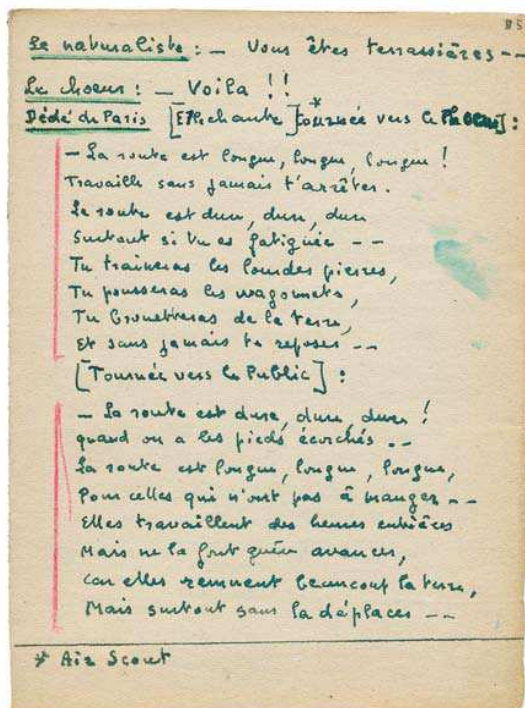 85
Le naturaliste : — Vous êtes terrassières --
Le choeur : — Voila !!
Dédé de Paris [Elle chante]* tournée vers le Phoeur] :
— La route est longue, longue, longue !
Travaille sans jamais t'arrêter.
La route est dure, dure, dure
Surtout si tu es fatiguée --
Tu traineras les lourdes pierres,
Tu pousseras les wagonnets,
Tu brouetteras de la terre,
Et sans jamais te reposer --
[Tournée vers le Public] :
— La route est dure, dure, dure !
quand on a les pieds écorchés --
La route est longue, longue, longue,
Pour celles qui n'ont pas à manger --
Elles travaillent des heures entières
Mais ne la font guère avancer,
Car elles remuent beaucoup la terre,
Mais surtout sans la déplacer --
* Air Scout